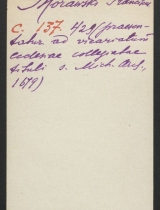 Morawski Francisc
C. 137. 4/2 g/ praesen-
tatur ad vicariatum
ecclesiae collegiatae
tituli s. Mich. Arch.,
1679)